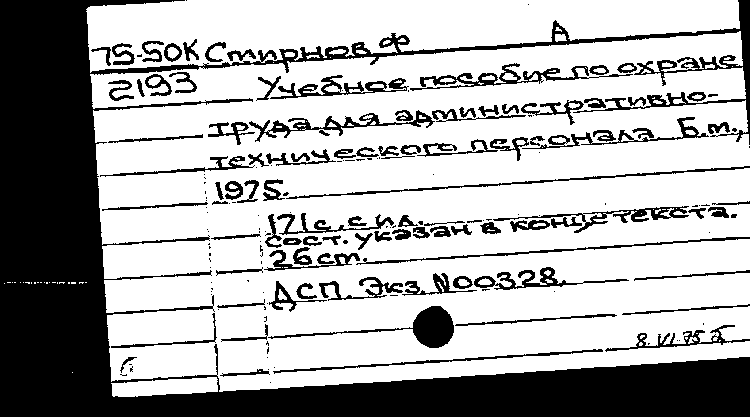 75-50К Смирнов, Ф А
2193 Учебное пособие по охране
труда для административно-
технического персонала. Б.м.,
1975.
171 с. с ил.
сост. указан в конце текста.
26 cm.
ДСП. Экз. N00328.
8.VI.75
б